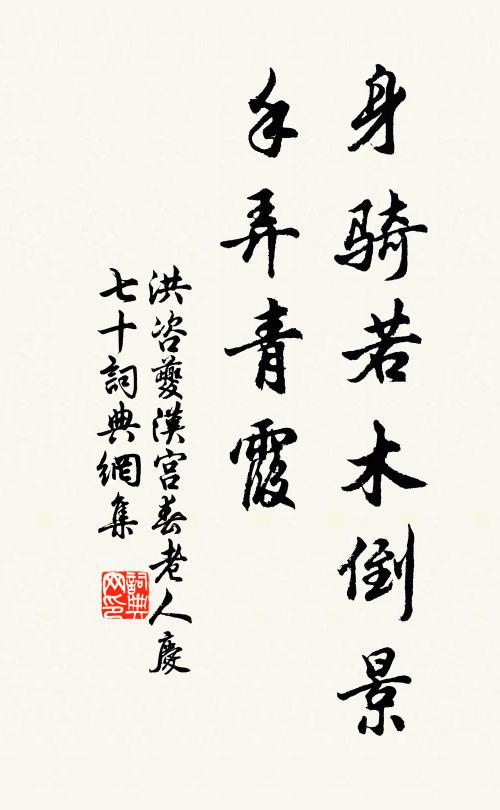 身骑若木倒景
手弄青霞
洪咨夔漢宫春老人慶
七十詞典網集
詞典网印